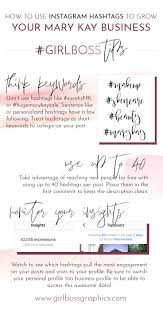 HOW TO USE INSTAGRAM HASHTAGS TO GROW
YOUR MARY KAY BUSINESS
#GIRLBOSS tips
think keywords
Don't use hashtags like #sarahsMK
or #hugemarykaysale. Sentence like
or personalized hashtags have a low
following. Treat hashtags as short
keywords to categorize your post.
#makeup
#skincare
#beauty
#marykay
use up to 40
Take advantage of reaching new people for free with
using up to 40 hashtags per post. Place them in the
1st comment to keep the description clean.
monitor your insights
Insights
Watch to see which hashtags pull the most engagement
on your posts and visits to your profile. Be sure to switch
your personal profile too business profile to be able to
access this awesome data!
www.girlbossgraphics.com